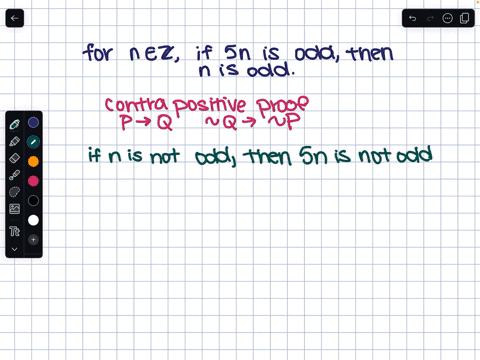 for n∈ℤ, if 5n is odd, then
n is odd.
contra positive proof
P→Q ~Q→~P
if n is not odd, then 5n is not odd